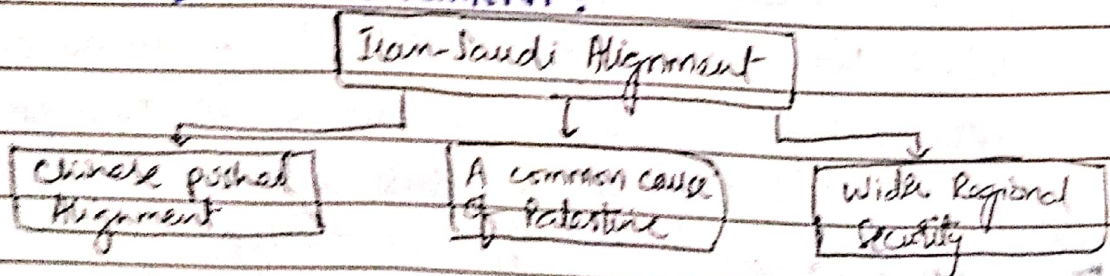 Iran-Saudi Alignment
Chinese pushed
Alignment
A common cause
of Palestine
Wider Regional
Security